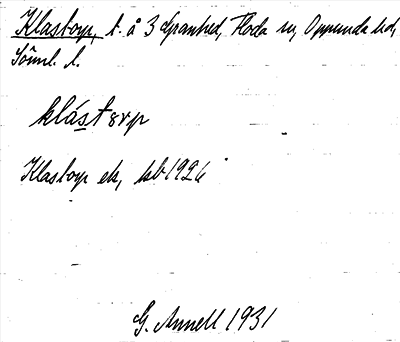 Klastorp, t. å 3 Granhed, Floda sn, Oppunda hd,
Söml. l.
klástorp
Klastorp ek, kb 1926
G. Annell 1931